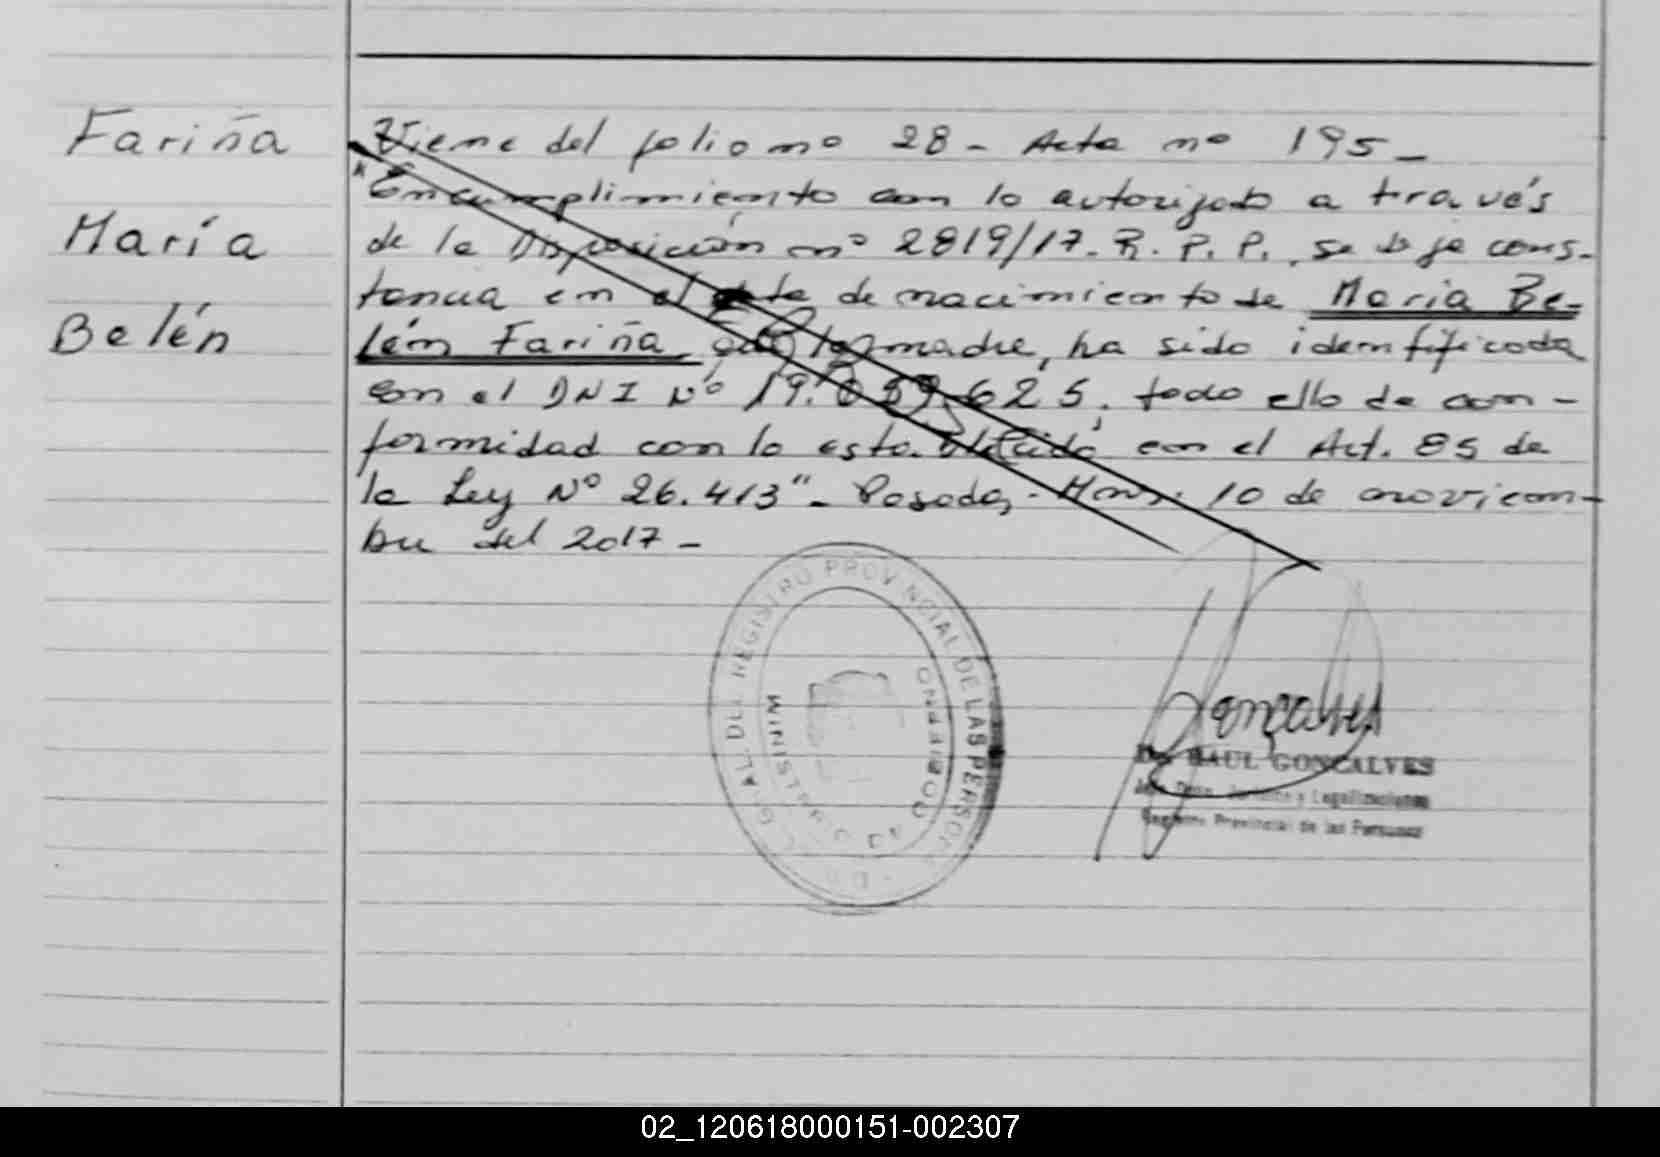 Fariña
María
Belén
Viene del folio nº 28 - Acta nº 195 -
"En cumplimiento con lo autorizado a través
de la Disposición nº 2819/17. R. P. P., se deja cons-
tancia en el acta de nacimiento de María Be-
lén Fariña que la madre, ha sido identificada
con el DNI Nº 19.059.625, todo ello de con-
formidad con lo establecido en el Art. 85 de
la Ley Nº 26.413" - Posadas, - Mnes. 10 de noviem-
bre del 2017 -
GRAL. DEL REGISTRO PROVINCIAL DE LAS PERSONAS
MINISTERIO DE GOBIERNO
Gonçalves
Dr. RAUL GONCALVES
Jefe Dpto. Jurídico y Legalizaciones
Registro Provincial de las Personas
02_120618000151-002307